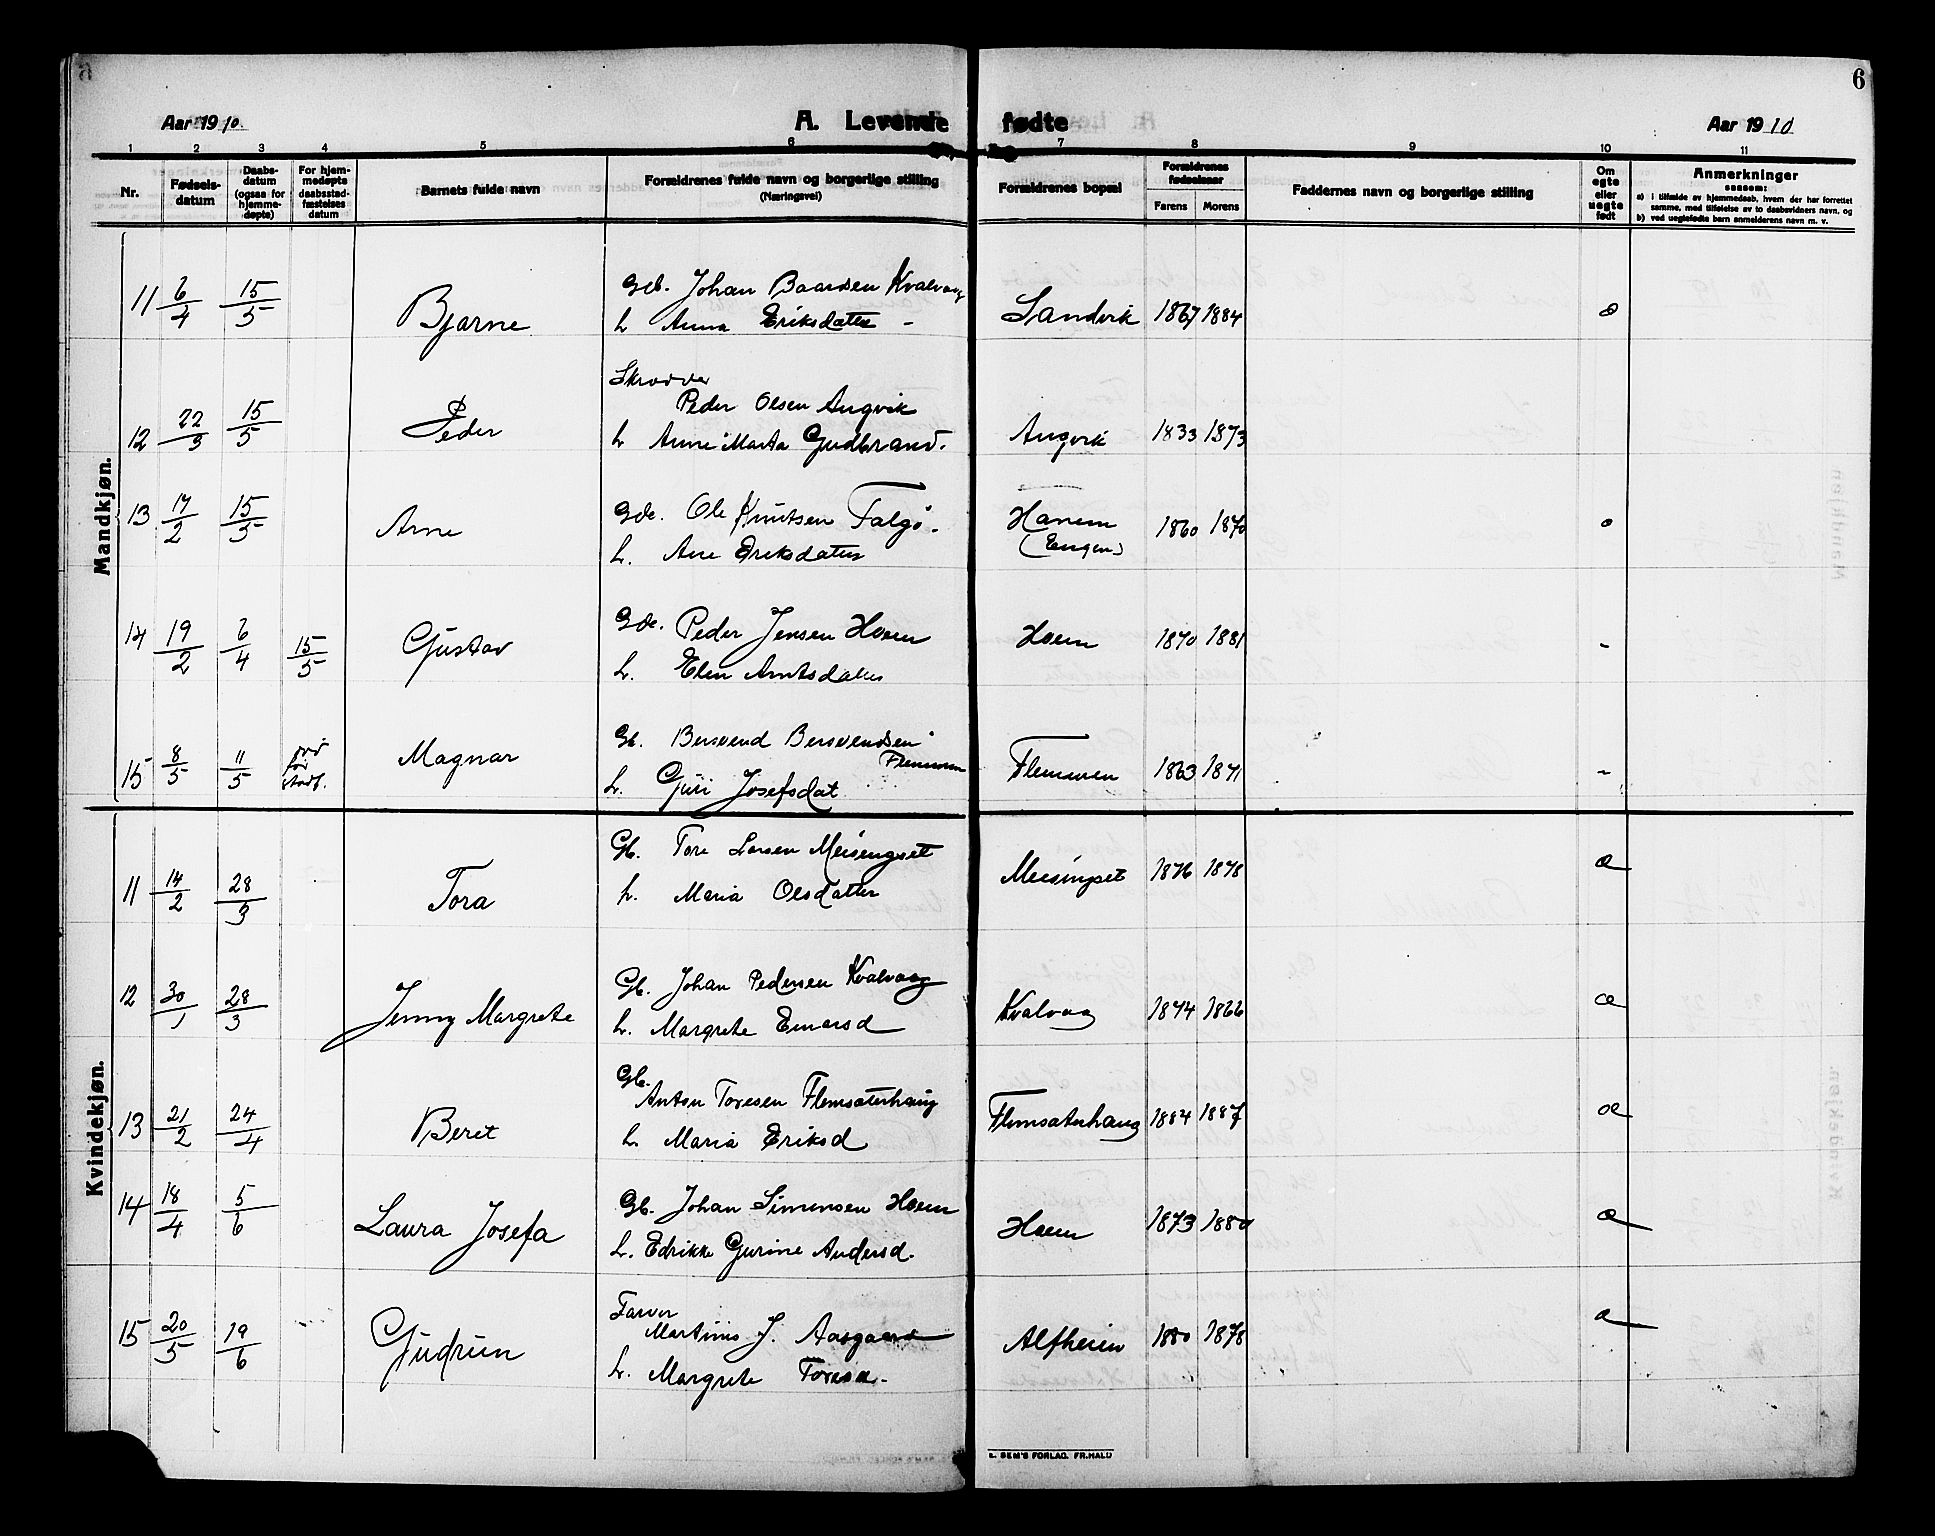 6
Aar 1910.
A. Levende fødte
Aar 1910
1 2 3 4 5 6 7 8 9 10 11
Nr.
Fødsels-
datum
Daabs-
datum
(ogsaa for
hjemme-
døpte)
For hjem-
medøpte
daabsstad-
fæstelses
datum
Barnets fulde navn
Forældrenes fulde navn og borgerlige stilling
(Næringsvei)
Forældrenes bopæl
Forældrenes
fødselsaar
Farens Morens
Faddernes navn og borgerlige stilling
Om
egte
eller
uegte
født
Anmerkninger
saasom:
a) i tilfælde av hjemmedaab, hvem der har forrettet
samme, med tilføielse av to daabsvidners navn, og
b) ved uegtefødte barn anmelderens navn m. v.
Mandkjøn.
11 6/4 15/5 Bjarne Gb. Johan Baardsen Kvalvaag Sandvik 1867 1884
h Anna Eriksdatter -
Skrædder
12 22/3 15/5 Peder Peder Olsen Angvik Angvik 1833 1873
h Anne Marta Gudbrand.
13 17/2 15/5 Arne Gde. Ole Knutsen Talgø. Hanem 1860 1870
h. Ane Eriksdatter (Engen)
14 19/2 6/4 15/5 Gustav Gde. Peder Jensen Hoem Hoem 1870 1881 -
h. Elen Arntsdatter
15 8/5 11/5 Magnar Gb. Bersvend Bersvendsen Flemmen Flemmen 1863 1871 -
h. Guri Josefsdat
Kvindekjøn.
11 14/2 28/3 Tora Gb. Tore Larsen Meisingset Meisingset 1876 1878
h. Maria Olsdatter
12 30/1 28/3 Jenny Margrete Gb. Johan Pedersen Kvalvaag Kvalvaag 1874 1866
h. Margrete Einarsd
Gb.
13 21/2 24/4 Beret Anton Toresen Flemsæterhaug Flemsæterhaug 1884 1887
h. Maria Eriksd
14 18/4 5/6 Laura Josefa Gb. Johan Simonsen Hoem Hoem 1873 1880
h. Edrikke Gurine Andersd.
Farver
15 20/5 19/6 Gudrun Martinus J. Aasgaard Alfheim 1880 1878
h. Margrete Toresd.
L. SEM'S FORLAG. FR.HALD